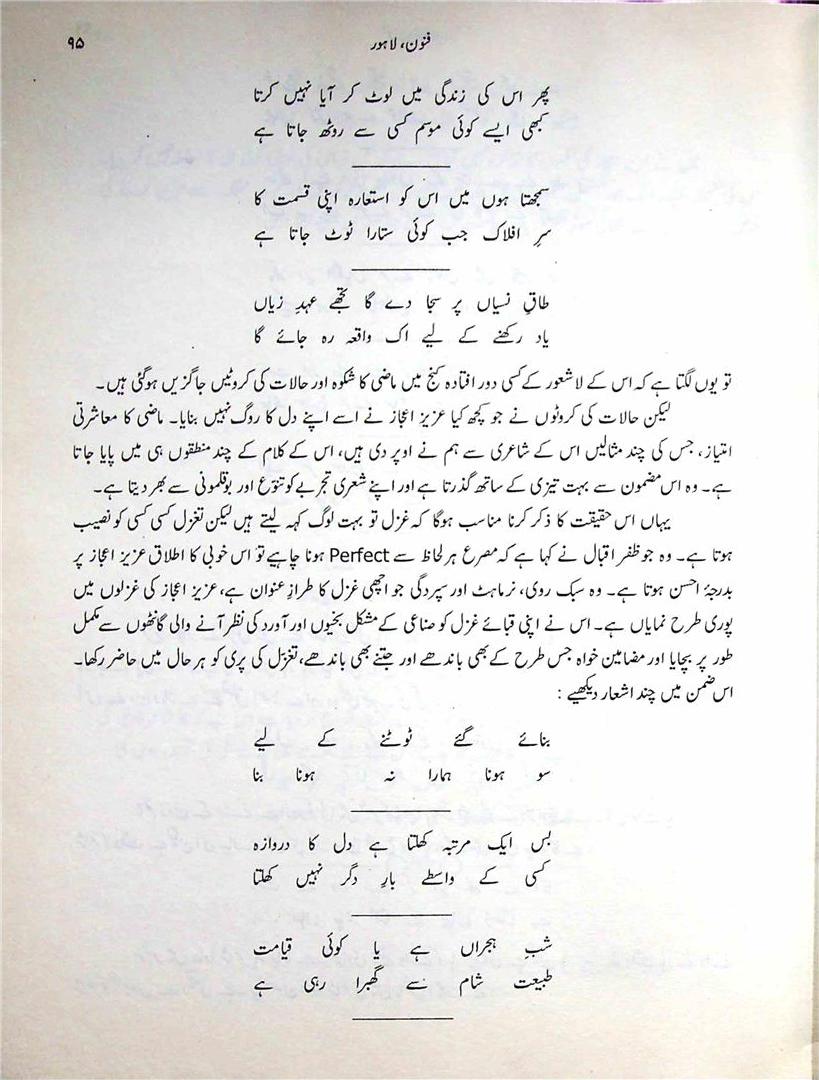 فنون، لاہور
۹۵
پھر اس کی زندگی میں لوٹ کر آیا نہیں کرتا
کبھی ایسے کوئی موسم کسی سے روٹھ جاتا ہے
سمجھتا ہوں میں اس کو استعارہ اپنی قسمت کا
سرِ افلاک جب کوئی ستارا ٹوٹ جاتا ہے
طاقِ نسیاں پر سجا دے گا تجھے عہدِ زیاں
یاد رکھنے کے لیے اک واقعہ رہ جائے گا
تو یوں لگتا ہے کہ اس کے لاشعور کے کسی دور افتادہ کنج میں ماضی کا شکوہ اور حالات کی کروٹیں جاگزیں ہوگئی ہیں۔
لیکن حالات کی کروٹوں نے جو کچھ کیا عزیز اعجاز نے اسے اپنے دل کا روگ نہیں بنایا۔ ماضی کا معاشرتی
امتیاز، جس کی چند مثالیں اس کے شاعری سے ہم نے اوپر دی ہیں، اس کے کلام کے چند منطقوں ہی میں پایا جاتا
ہے۔ وہ اس مضمون سے بہت تیزی کے ساتھ گذرتا ہے اور اپنے شعری تجربے کو تنوّع اور بوقلمونی سے بھر دیتا ہے۔
یہاں اس حقیقت کا ذکر کرنا مناسب ہوگا کہ غزل تو بہت لوگ کہہ لیتے ہیں لیکن تغزل کسی کسی کو نصیب
ہوتا ہے۔ وہ جو ظفر اقبال نے کہا ہے کہ مصرع ہر لحاظ سے Perfect ہونا چاہیے تو اس خوبی کا اطلاق عزیز اعجاز پر
بدرجۂ احسن ہوتا ہے۔ وہ سبک روی، نرماہٹ اور سپردگی جو اچھی غزل کا طرازِ عنوان ہے، عزیز اعجاز کی غزلوں میں
پوری طرح نمایاں ہے۔ اس نے اپنی قبائے غزل کو صناعی کے مشکل بخیوں اور آورد کی نظر آنے والی گانٹھوں سے مکمل
طور پر بچایا اور مضامین خواہ جس طرح کے بھی باندھے اور جتنے بھی باندھے، تغزل کی پری کو ہر حال میں حاضر رکھا۔
اس ضمن میں چند اشعار دیکھیے:
بنائے گئے ٹوٹنے کے لیے
سو ہونا ہمارا نہ ہونا بنا
بس ایک مرتبہ کھلتا ہے دل کا دروازہ
کسی کے واسطے بارِ دگر نہیں کھلتا
شبِ ہجراں ہے یا کوئی قیامت
طبیعت شام سے گھبرا رہی ہے